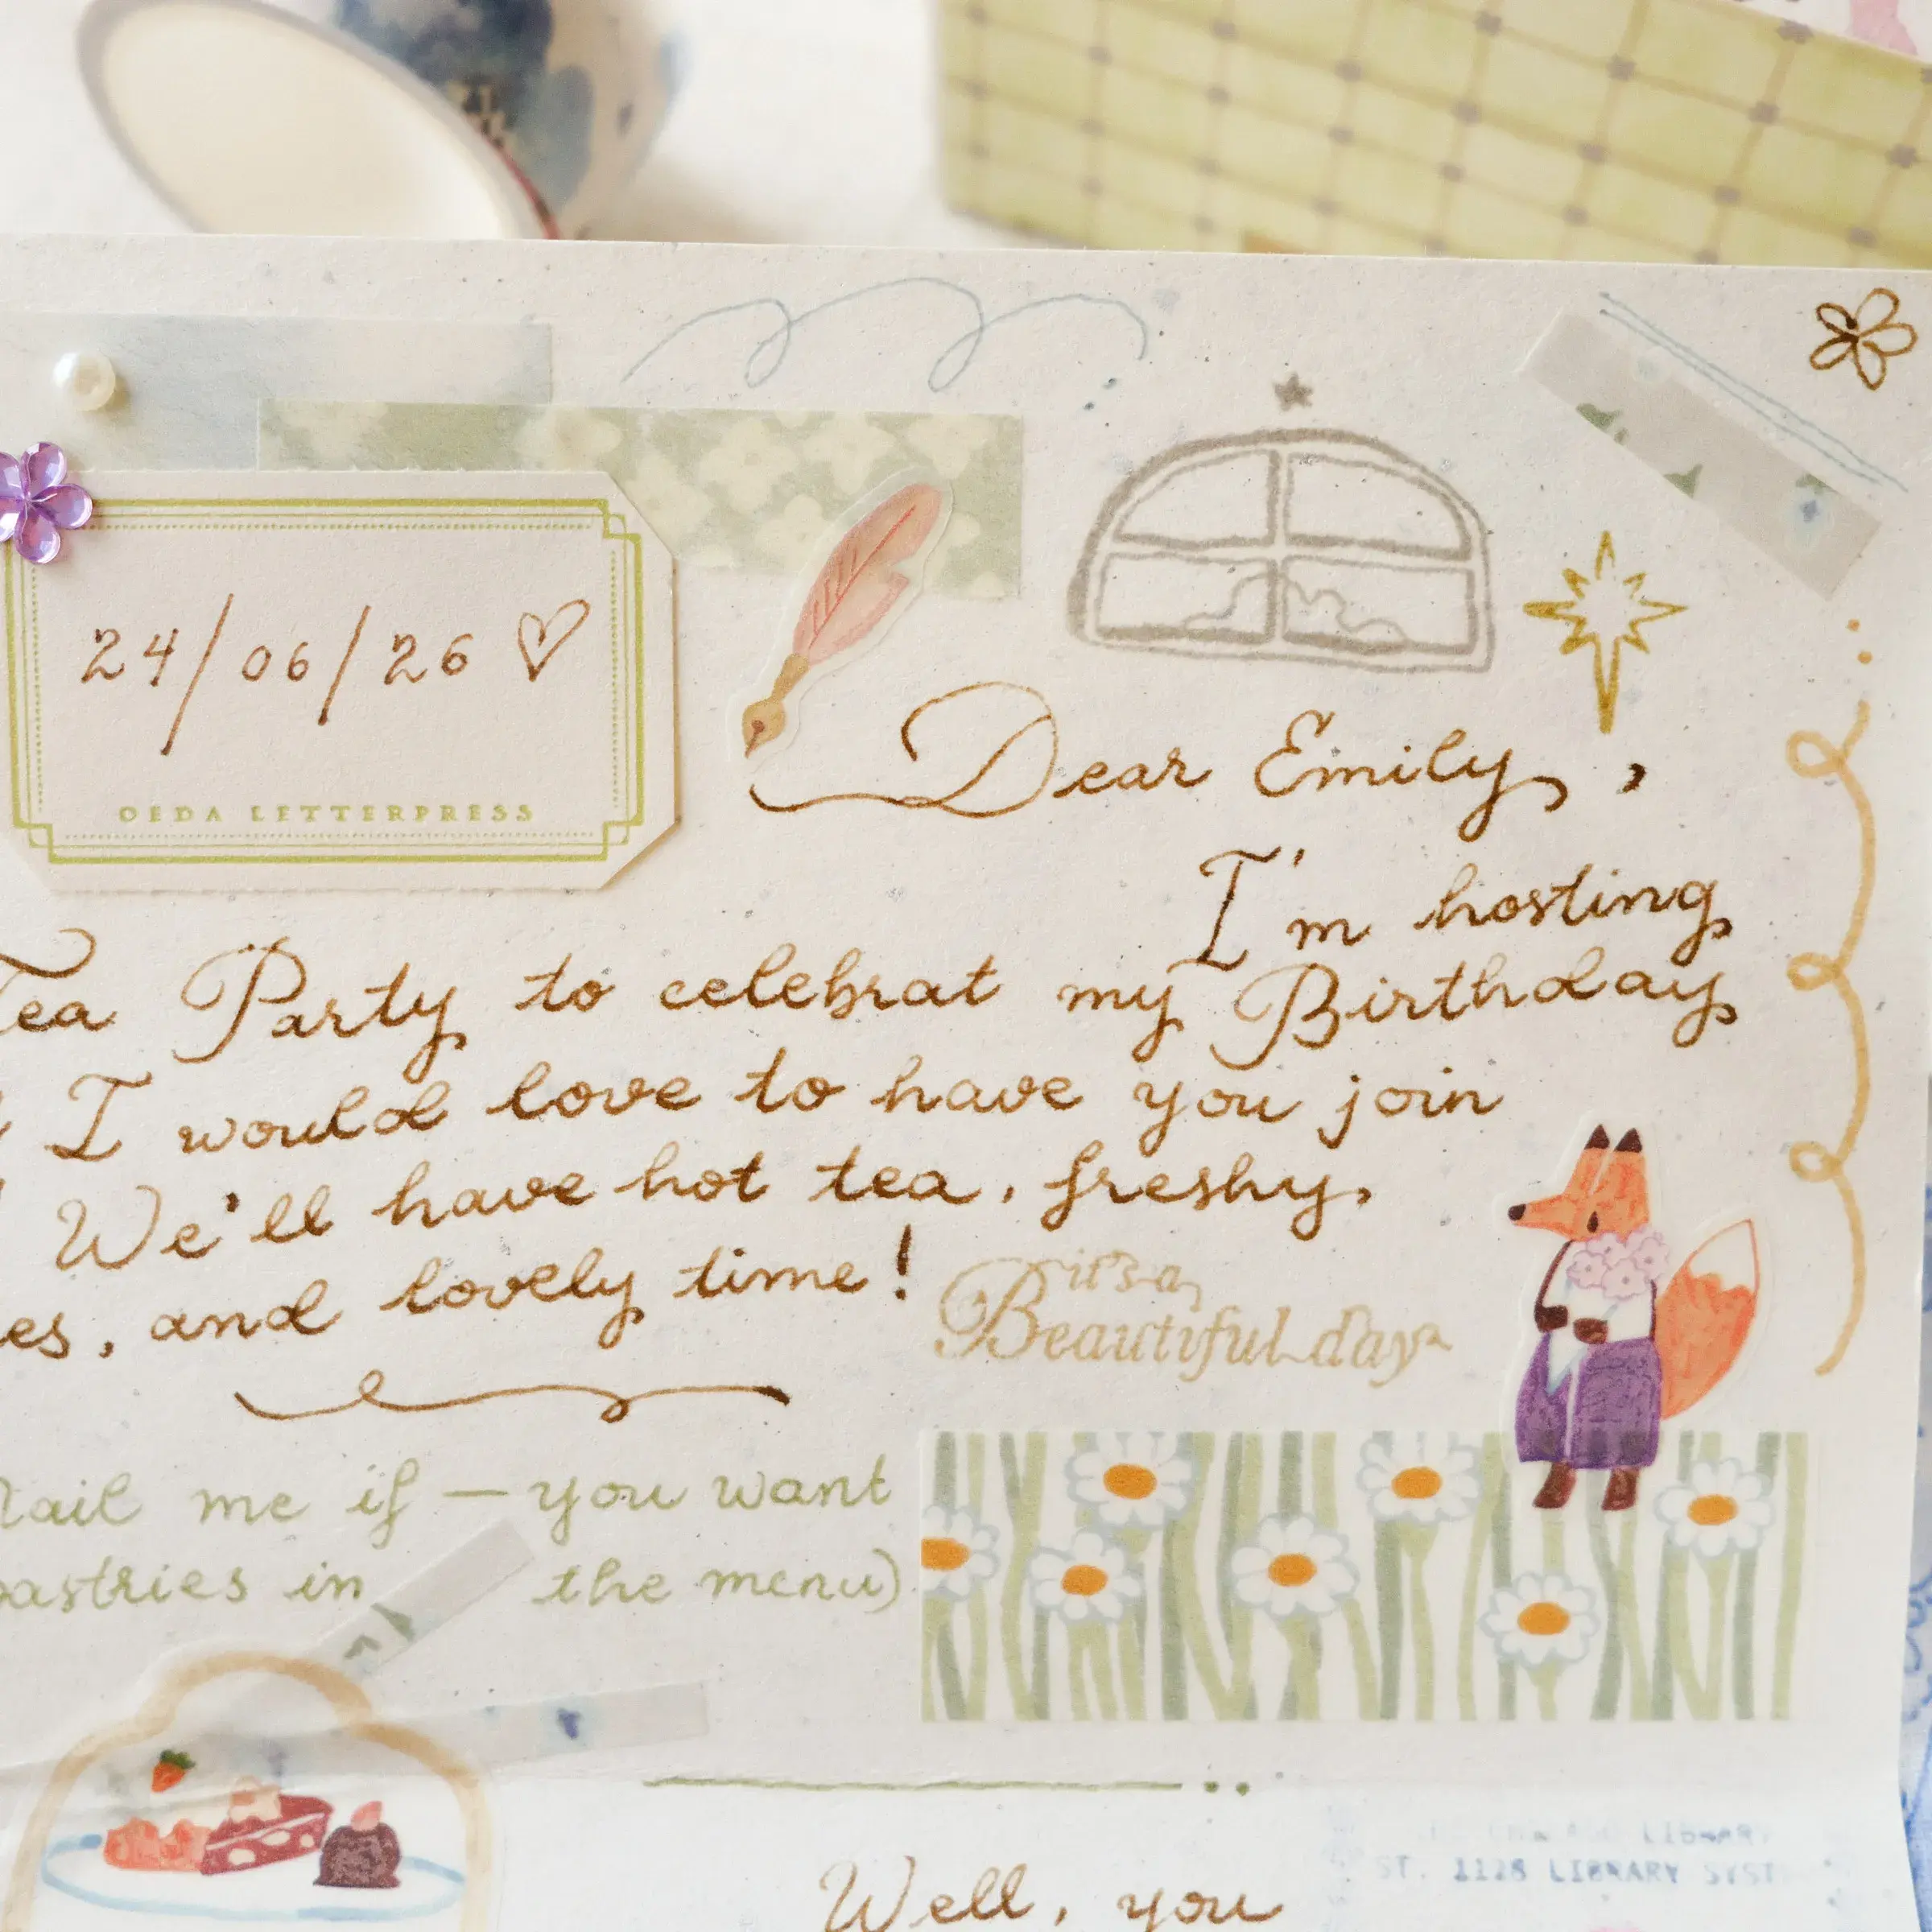 24/06/26
OEDA LETTERPRESS
Dear Emily,
I'm hosting
Tea Party to celebrat my Birthday
I would love to have you join
We'll have hot tea, freshy,
es, and lovely time!
it's a
Beautiful day
Mail me if — you want
pastries in the menu)
LIBRARY
ST. 1128 LIBRARY SYST
Well, you